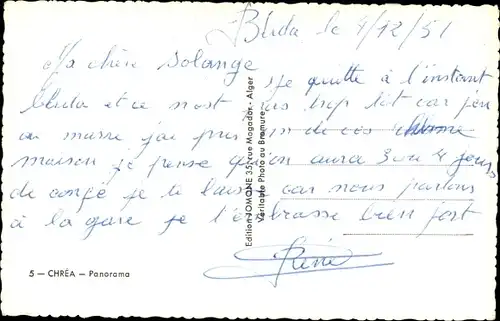 Blida le 4/12/51
Ma chère Solange
je quitte à l'instant
Blida et ce n'est pas trop tôt car j'en
ai marre j'ai pris un de ces
maison je pense qu'on aura 3 ou 4 jours
de congé je te laisse car nous partons
à la gare je t'embrasse bien fort
Edition JOMONE 35, rue Mogador - Alger
Véritable Photo au Bromure
5 — CHRÉA — Panorama